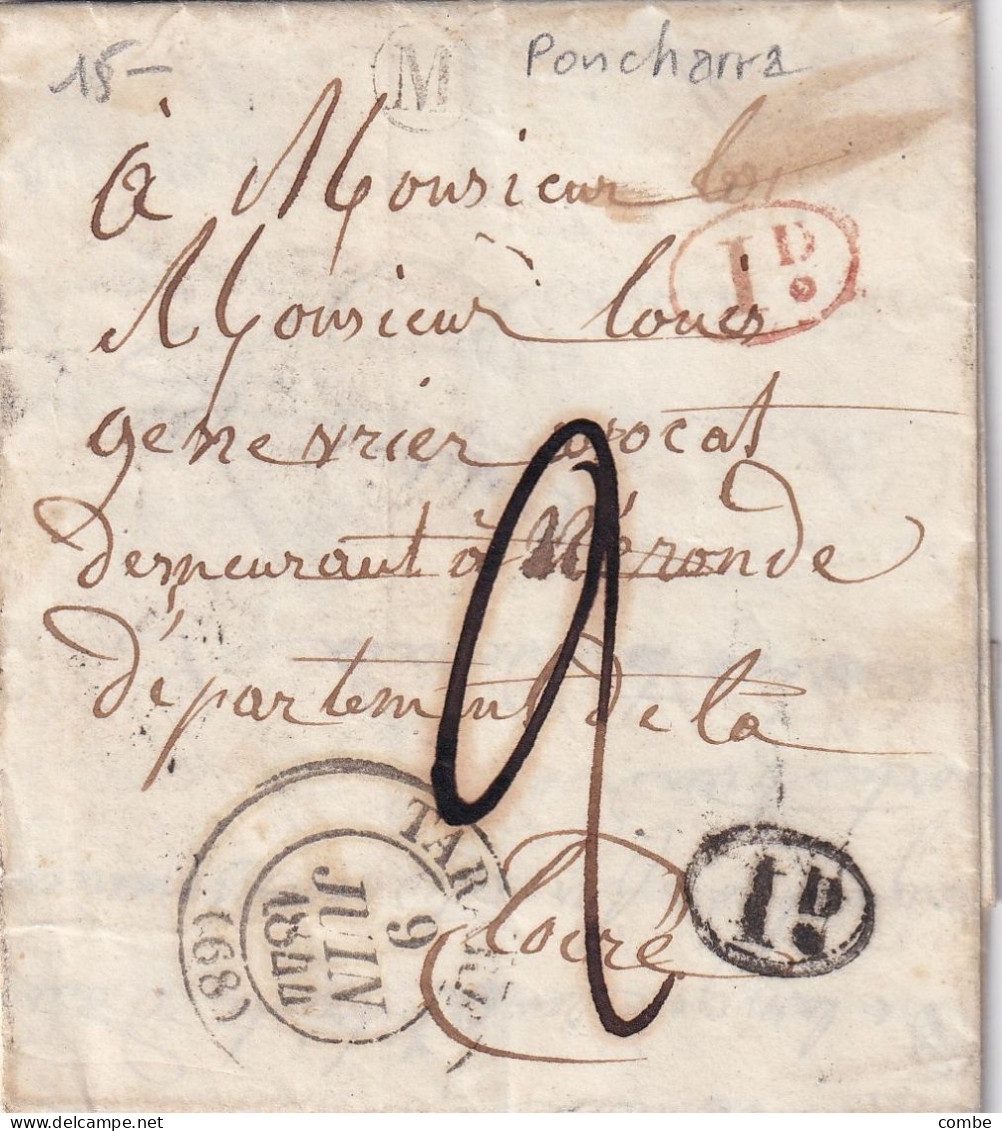 18 —
M
Poncharra
à Monsieur
1D.
Monsieur loues
genevrier avocat
demeurant à Néronde
département de la
loire
2
TARARE
9
JUIN
1844
(68)
1D.
combe